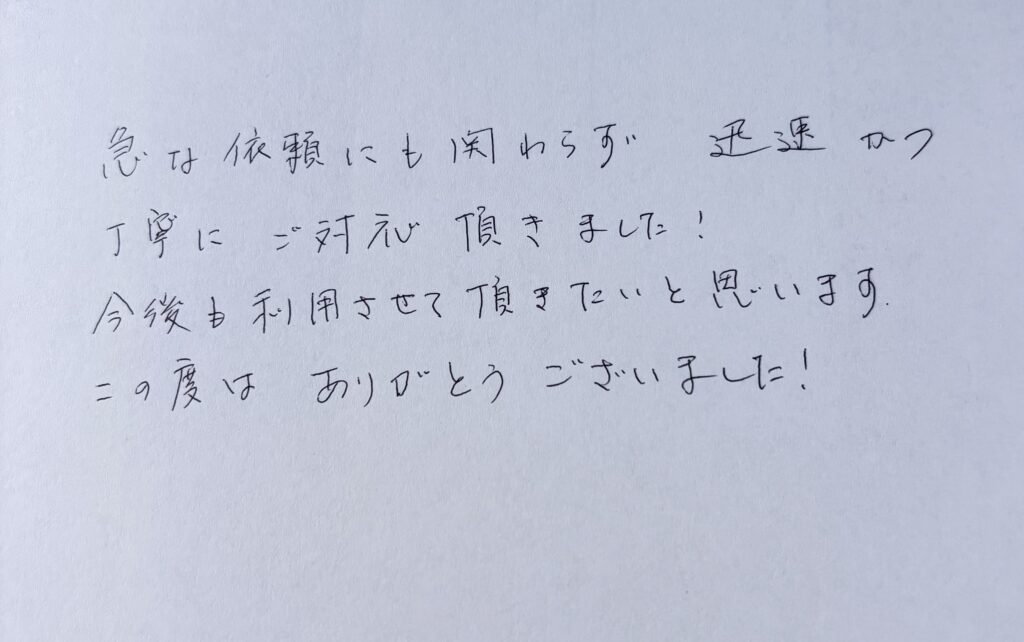 急な依頼にも関わらず 迅速かつ
丁寧に ご対応 頂きました!
今後も利用させて頂きたいと思います.
この度は ありがとう ございました!